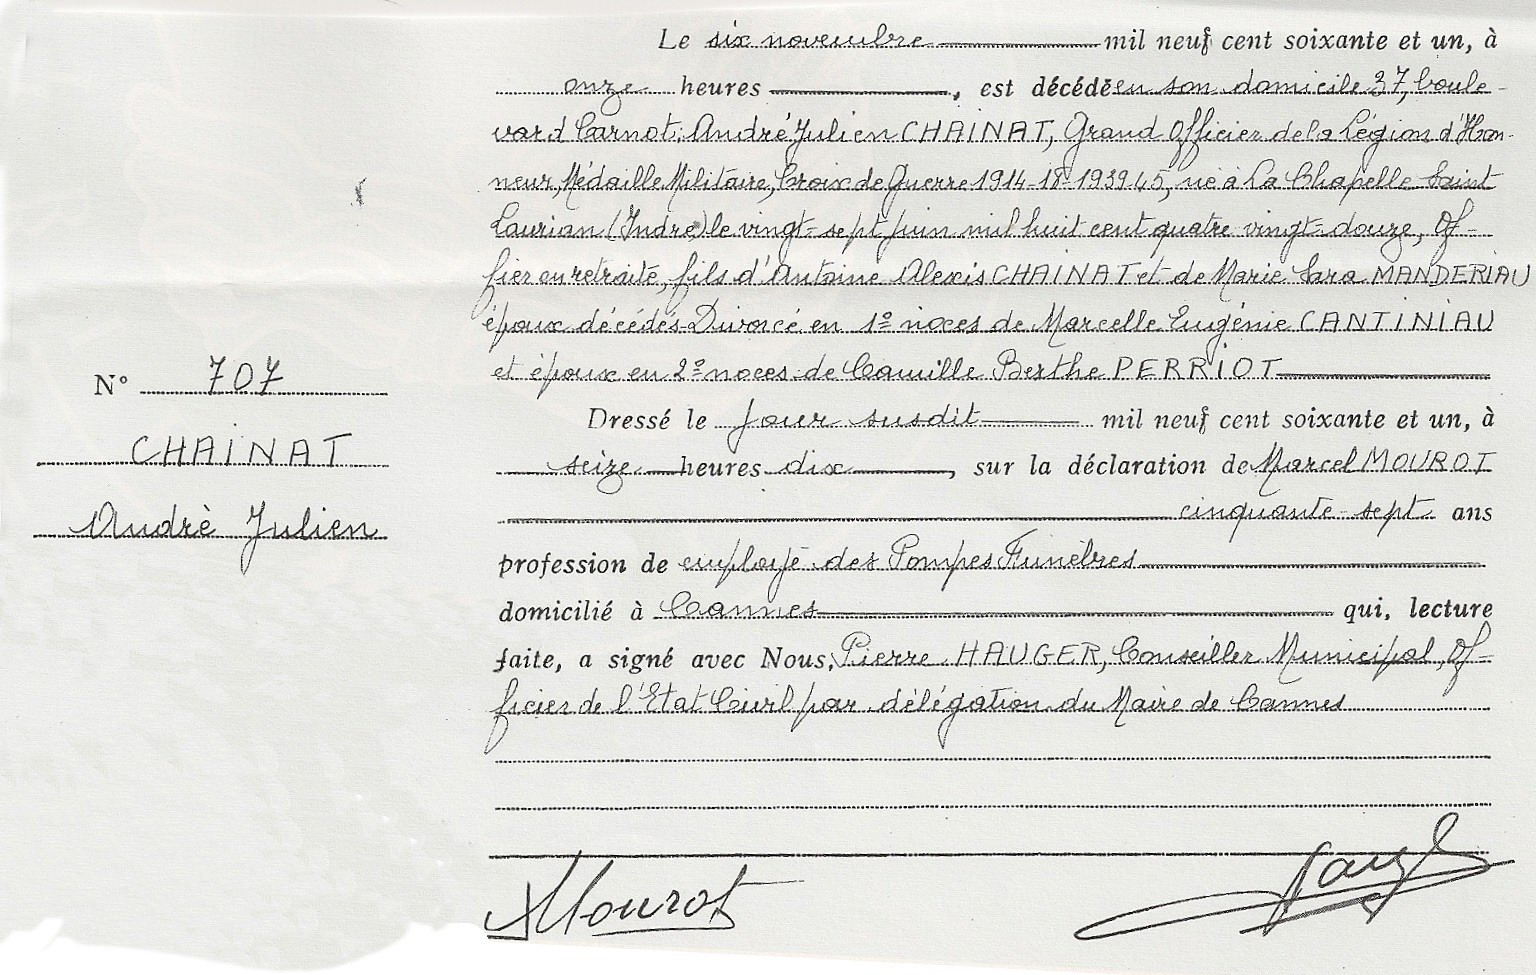 Le six novembre mil neuf cent soixante et un, à
onze heures , est décédé en son domicile 37, boule-
vard Carnot: André Julien CHAINAT, Grand Officier de la Légion d'Hon-
neur, Médaille Militaire, Croix de Guerre 1914-18-1939 45, né à La Chapelle Saint
Laurian (Indre) le vingt-sept juin mil huit cent quatre vingt-douze, Of-
ficier en retraite, fils d'Antoine Alexis CHAINAT et de Marie Sara MANDERIAU
époux décédés-Divorcé en 1º noces de Marcelle Eugénie CANTINIAU
et époux en 2º noces de Camille Berthe PERRIOT
N° 707
CHAINAT
André Julien
Dressé le jour susdit mil neuf cent soixante et un, à
seize heures dix , sur la déclaration de Marcel MOUROT
cinquante-sept ans
profession de employé des Pompes Funèbres
domicilié à Cannes qui, lecture
faite, a signé avec Nous, Pierre HAUGER, Conseiller Municipal, Of-
ficier de l'Etat Civil par délégation du Maire de Cannes
Mourot